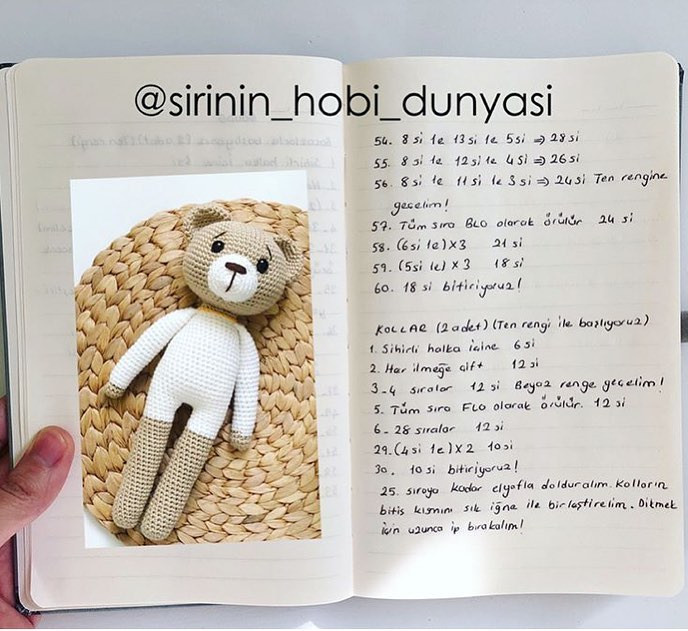 @sirinin_hobi_dunyasi
54. 8 si 1e 13 si 1e 5 si ⇒ 28 si
55. 8 si 1e 12 si 1e 4 si ⇒ 26 si
56. 8 si 1e 11 si 1e 3 si ⇒ 24 si Ten rengine
geçelim!
57. Tüm sıra BLO olarak örülür 24 si
58. (6 si 1e) x 3 21 si
59. (5 si 1e) x 3 18 si
60. 18 si bitiriyoruz!
KOLLAR (2 adet) (Ten rengi ile başlıyoruz)
1. Sihirli halka içine 6 si
2. Her ilmeğe çift 12 si
3-4 sıralar 12 si Beyaz renge geçelim!
5. Tüm sıra FLO olarak örülür. 12 si
6-28 sıralar 12 si
29. (4 si 1e) x 2 10 si
30. 10 si bitiriyoruz!
25. sıraya kadar elyafla dolduralım. Kolların
bitiş kısmını sık iğne ile birleştirelim. Dikmek
için uzunca ip bırakalım!